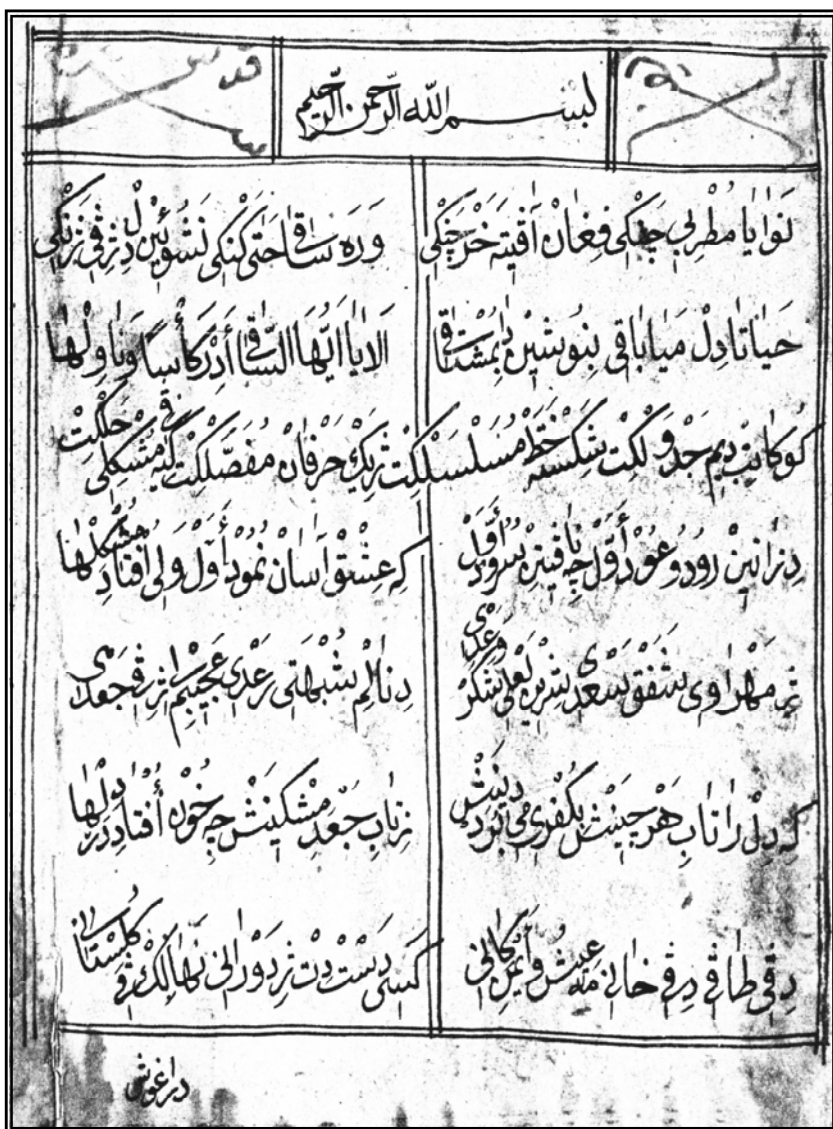 قدس سره
بسم الله الرحمن الرحيم
نَوَایا مُطْرِبِ چَنْکی فِغَانْ آڤیتَه خَرْچَنْکی وَرَه سَاقی حَتَی کَنْکی نَشُوئِینْ دِلْ ژِڤی ژَنْکی
حَیَاتَا دِلْ مَیَا بَاقی بِنُوشِینْ دَا بِمُشْتَاقی اَلَا یَا اَیُّهَا السَّاقی أَدِرْ کَأْسًا وَنَاوِلْهَا
کُو کَاتِبْ دیم جَدْوَلْ کِتْ شِکَسْتَه خَطْ مُسَلْسَلْ کِتْ ژِیَکْ حَرْفَانْ مُفَصَّلْ کِتْ کِیَه مُشکِلی ڤی حَلْ کِتْ
دِزَانِینْ رُودُ وعُودْ أَوَّلْ چِه بَاڤیتِنْ سُرُودْ أَوَّلْ کِه عِشْقْ آسَانْ نُمُودْ أَوَّلْ وَلی اُفْتَادْ مُشْکِلْهَا
ژِ مَهْرَا وی شَفَقْ سَعْدی شِرِینْ لَعْلی شَکَرْ وَعْدی دِنَالِمْ شُبْهَتی رَعْدی عَجِیبِمْ اَژْ ژِڤی جَعْدی
کِه دِلْ رَا تَابِ هَرْ چِینِشْ بِکُفْری می بَرَدْ دِینِشْ زِتَابِ جَعْدِ مِشْکِینِشْ چِه خُونْ اُفْتَادْ دَرْ دِلْهَا
دِڤی طَاقی دِڤی خَانی مَه عَیْشُ وأَیْمَنِ کَانی کَسی دَسْتْ دِتْ ژِدَوْرَانی نَهَالَكْ ڤی کُلِسْتَانی
دراغوشی